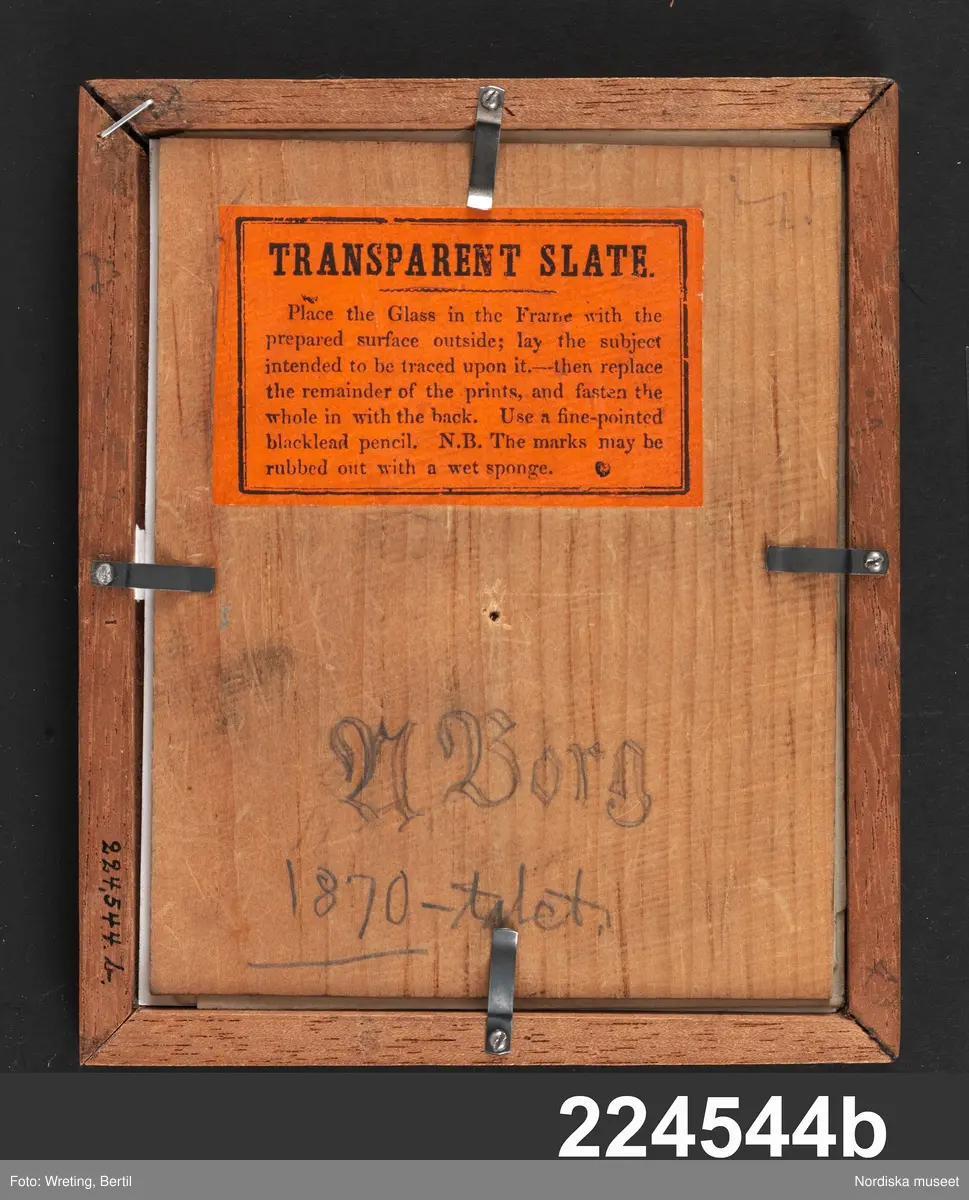 TRANSPARENT SLATE.
Place the Glass in the Frame with the
prepared surface outside; lay the subject
intended to be traced upon it.—then replace
the remainder of the prints, and fasten the
whole in with the back. Use a fine-pointed
blacklead pencil. N.B. The marks may be
rubbed out with a wet sponge.
Borg
1870-talet.
224,544.b.
224544b
Foto: Wreting, Bertil
Nordiska museet